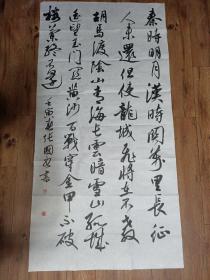 秦時明月漢時關萬里長征
人未還但使龍城飛將在不教
胡馬渡陰山青海長雲暗雪山孤城
遙望玉門關黃沙百戰穿金甲不破
樓蘭終不還